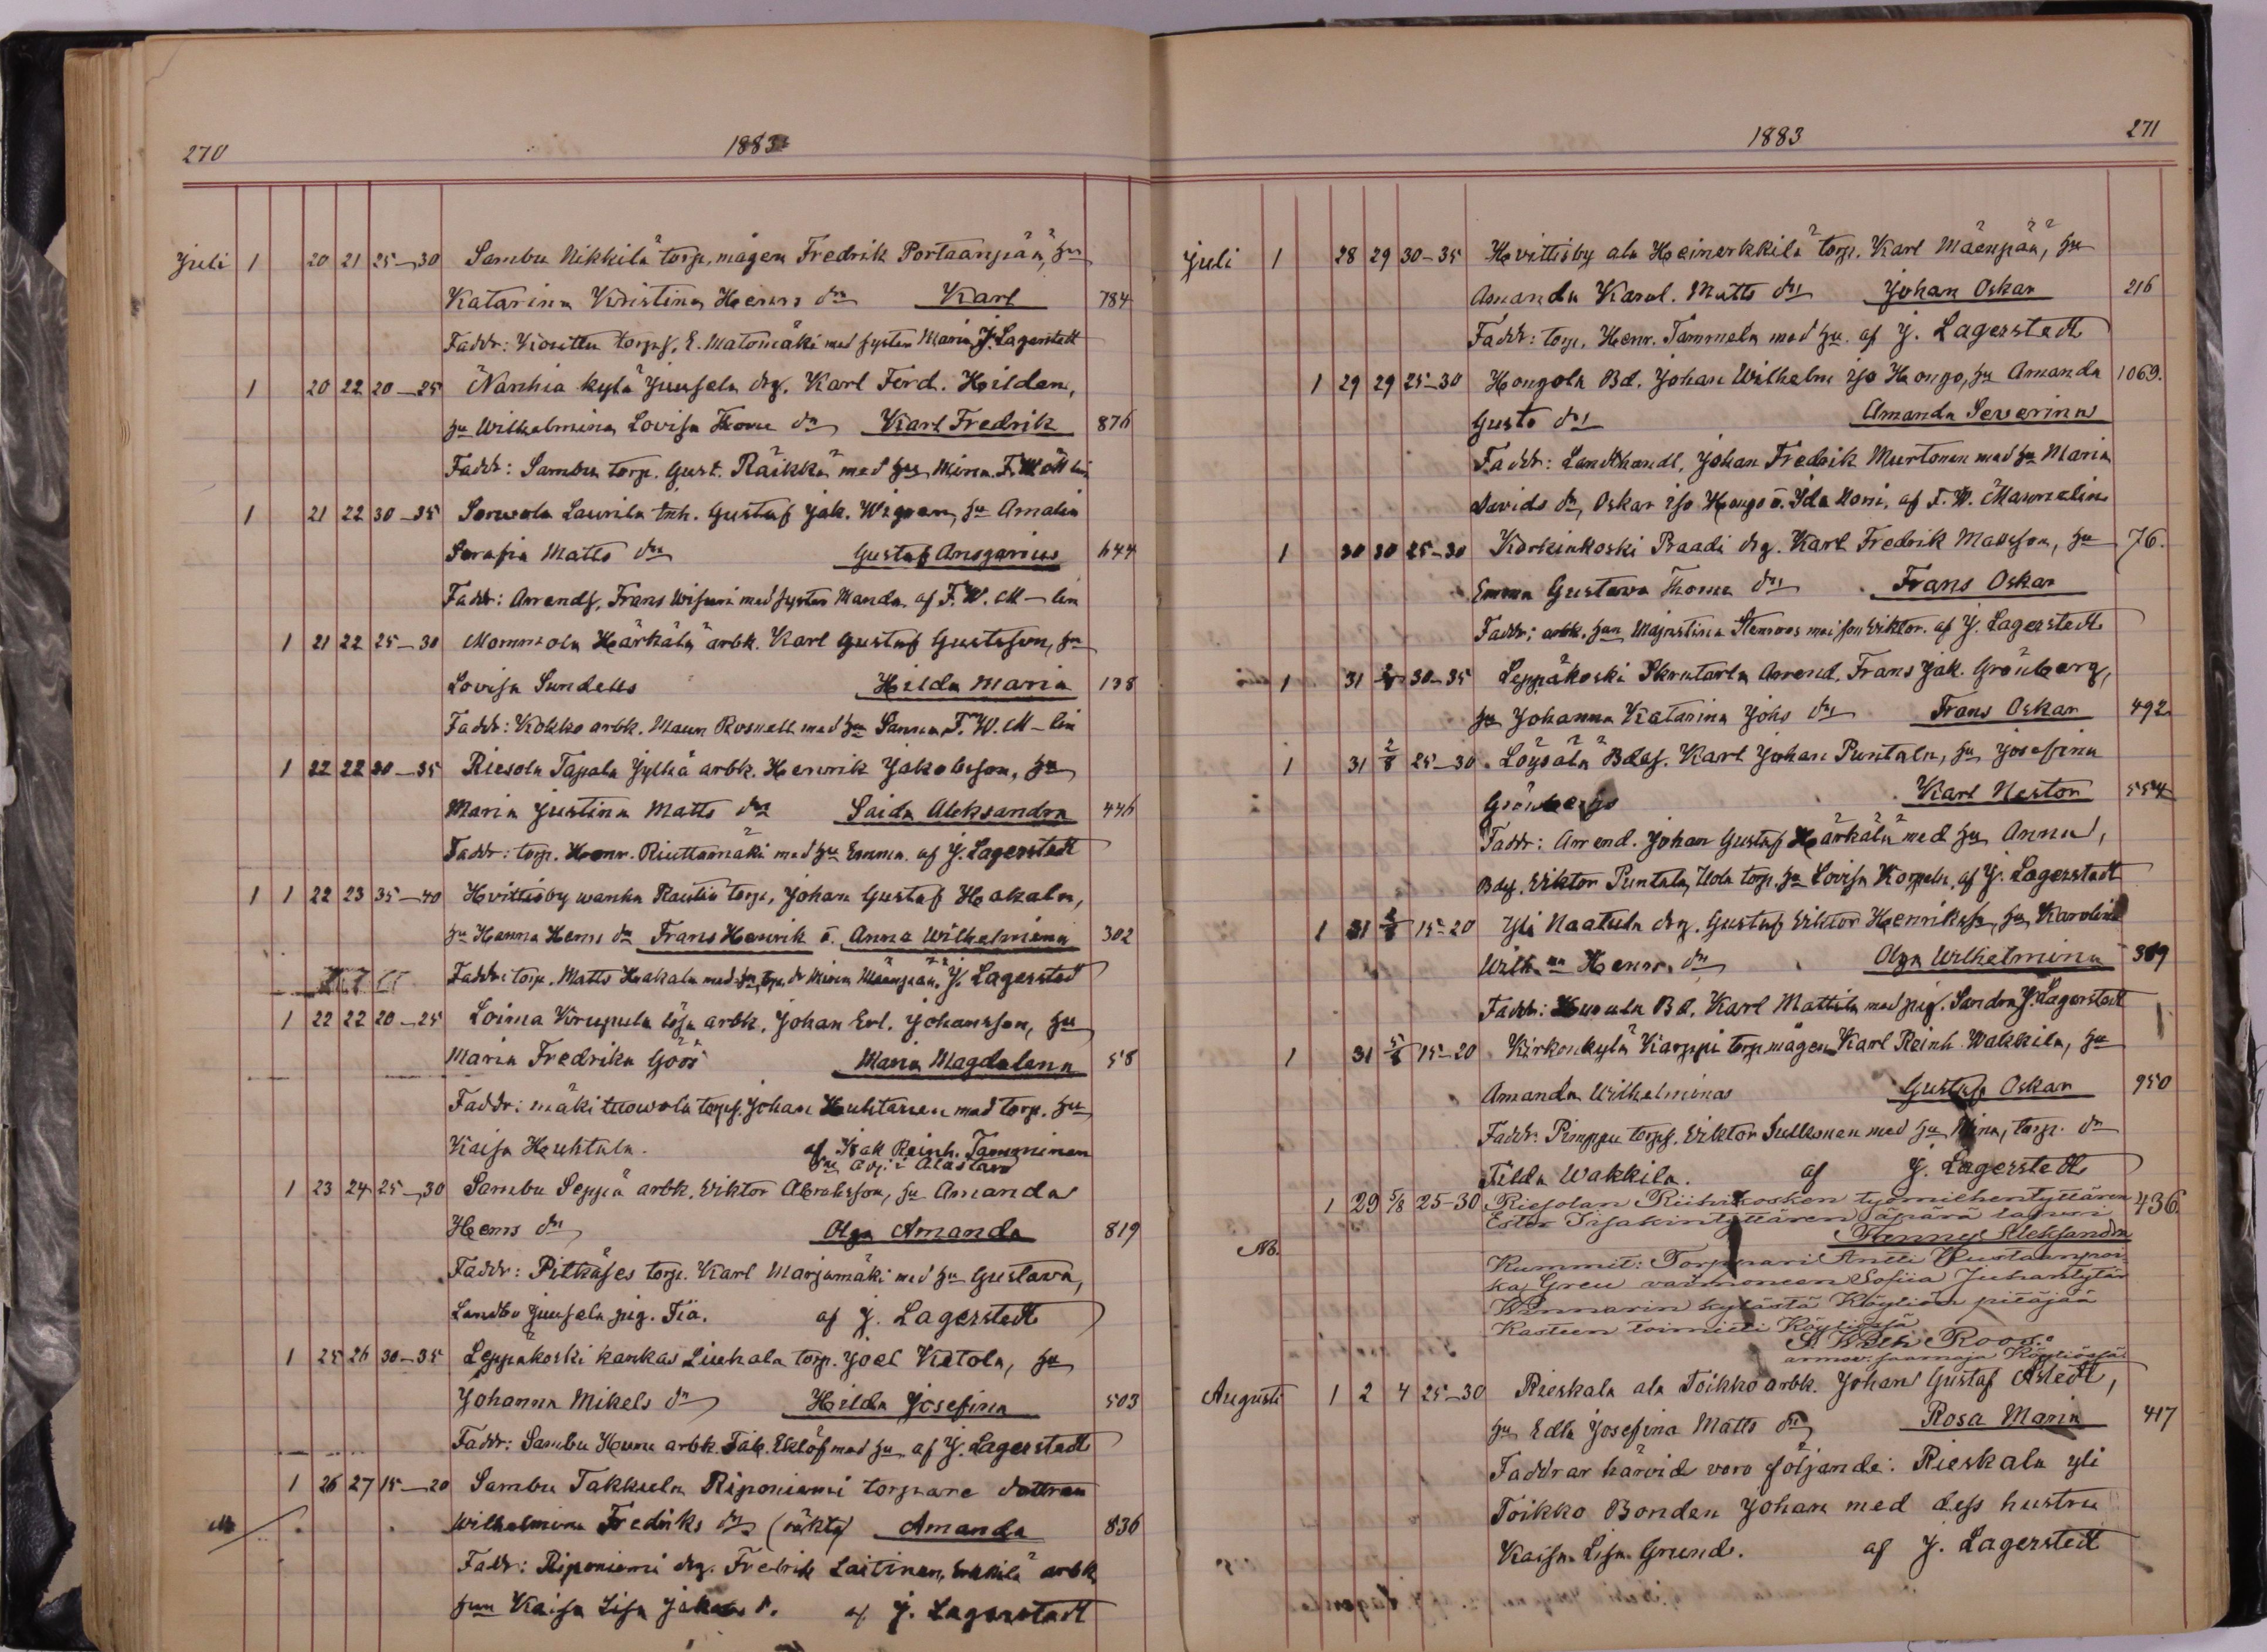 270
1883
Juli 1 20 21 25-30 Sambu Nikkilä torp. mågen Fredrik Portaanpää, hu
Katarina Kristina Henrs dr Karl 784
Faddr: Kiouttu torps. E. Matomäki med syster Maria J. Lagerstedt
1 20 22 20-25 Nanhia kylä Juusela drg. Karl Ferd. Hildén,
hu Wilhelmina Lovisa Thome dr Karl Fredrik 876
Faddr: Sambu torp. Gust. Räikkä med hu Mina. F. W. M-lin
1 21 22 30-35 Sorwola Laurila inh. Gustaf Jak. Wigren, hu Amalia
Serafia Matts dr Gustaf Ansgarius 644
Faddr: Arrends. Frans med syster Manda. af F. W. M-lin
1 21 22 25-30 Mommola Härkälä arbk. Karl Gustaf Gustafson, hu
Lovisa Sundells Hilda Maria 138
Faddr: Kokko arbk. Maun Rosnell med hu Sanna. F. W. M-lin
1 22 22 30-35 Riesola Tapala Jylhä arbk. Henrik Jakobsson, hu
Maria Justina Matts dr Saida Aleksandra 446
Faddr: torp. Henr. Riuttamäki med hu Emma. af J. Lagerstedt
1 1 22 23 35-40 Hvittisby wanha Rautio torp. Johan Gustaf Hakala,
hu Hanna Henrs dr Frans Henrik o. Anna Wilhelmina 302
Faddr: torp. Matts Hakala med hu, torp. dr Mina Mäenpää. J. Lagerstedt
1 22 22 20-25 Loima Krupula lösa arbk. Johan Erl. Johansson, hu
Maria Fredrika Göös Maria Magdalena 58
Faddr: mäkituowola torps. Johan Huhtanen med torp. hu
Kaisa Huhtala. af Isak Reinh. Tamminen
v. adj. i Alastaro
1 23 24 25-30 Sambu Seppä arbk. Viktor Abrahsson, hu Amanda
Henrs dr Olga Amanda 819
Faddr: Pitkäjes torp. Karl Marjamäki med hu Gustava,
Landbo Juusela pig. Fia. af J. Lagerstedt
1 25 26 30-35 Leppäkoski kankas Liuhala torp. Joel Kietola, hu
Johanna Mikels dr Hilda Josefina 503
Faddr: Sambu Huru arbk. Tab. Eklöf med hu af J. Lagerstedt
1 26 27 15-20 Sambu Takkula Riponiemi torpare dottren
Wilhelmina Fredriks dr (oäkta) Amanda 836
Faddr: Riponiemi drg. Fredrik Laitinen, Erkkilä arbk.
hun Kaisa Lisa Jakobs d. af J. Lagerstedt
1883
271
Juli 1 28 29 30-35 Hvittisby ala Heinerkkilä torp. Karl Mäenpää, hu
Amanda Karol. Matts dr Johan Oskar 216
Faddr: torp. Henr. Tammela med hu. af J. Lagerstedt
1 29 29 25-30 Hongola Bd. Johan Wilhelm iso Hongo, hu Amanda 1069.
Gusts dr Amanda Severina
Faddr: Landthandl. Johan Fredrik Murtonen med hu Maria
Davids dr, Oskar iso Hongo o. Ida Uoni, af F. W. Mannelin
1 30 30 25-30 Korkeakoski Raadi drg. Karl Fredrik Mattsson, hu 76.
Emma Gustava Thome dr Frans Oskar
Faddr: arbk. hun Majastina Stenroos med son Viktor. af J. Lagerstedt
1 31 2/8 30-35 Leppäkoski Skrutarla Arrend. Frans Jak. Grönberg,
hu Johanna Katarina Johs dr Frans Oskar 492
1 31 2/8 25-30 Löysälä Bdes. Karl Johan Puntala, hu Josefina
Grönbergs Karl Nestor 554
Faddr: Arrend. Johan Gustaf Härkälä med hu Anna,
Bdes. Viktor Puntala, Uola torp. hu Lovisa Korpela, af J. Lagerstedt
1 31 2/8 15-20 Yli Naatula drg. Gustaf Viktor Henriksson, hu Karolina
Wilh.na Henrs. dr Olga Wilhelmina 389
Faddr: Bd. Karl Mattila med pig. Sandra J. Lagerstedt
1 31 5/8 15-20 Kirkonkylä Karppi torp mågen Karl Reinh. Wakkila, hu
Amanda Wilhelminas Gustaf Oskar 950
Faddr: Pimppu torps. Viktor Sulkonen med hu Mina, torp. dr
Tilda Wakkila. af J. Lagerstedt
1 29 5/8 25-30 Riesolan Riihikosken työmiehentyttären 436.
Ester Isakintyttären äpärä lapsi
Nb. Fanny Aleksandra
Kummit: Torppari Antti Kustaanpoi
ka Greu vaimoneen Sofiia Juhantytär
Winnarin kylästä Köyliön pitäjää
Kasteen toimitti Köyliössä
A. Wilh. Roos.
armov. saarnaja Köyliössä
Augusti 1 2 4 25-30 Rieskala ala Toikko arbk. Johan Gustaf Astedt,
hu Edla Josefina Matts dr Rosa Maria 417
Faddrar härvid voro följande: Rieskala yli
Toikko Bonden Johan med dess hustru
Kaisa Lisa Grund. af J. Lagerstedt